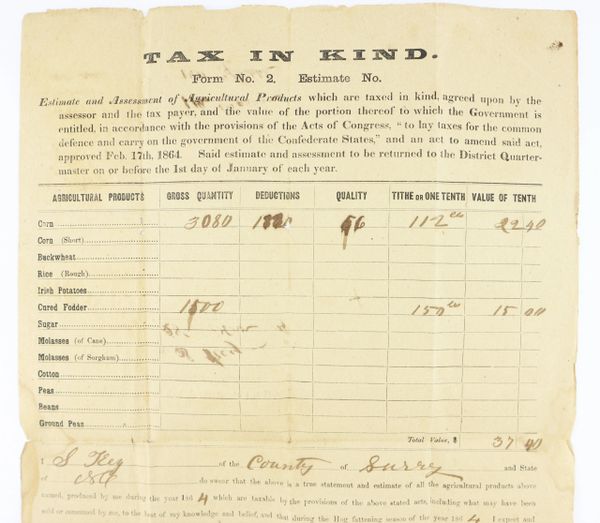 TAX IN KIND.
Form No. 2. Estimate No.
Estimate and Assessment of Agricultural Products which are taxed in kind, agreed upon by the
assessor and the tax payer, and the value of the portion thereof to which the Government is
entitled, in accordance with the provisions of the Acts of Congress, "to lay taxes for the common
defence and carry on the government of the Confederate States," and an act to amend said act,
approved Feb. 17th, 1864. Said estimate and assessment to be returned to the District Quarter-
master on or before the 1st day of January of each year.
AGRICULTURAL PRODUCTS GROSS QUANTITY DEDUCTIONS QUALITY TITHE OR ONE TENTH VALUE OF TENTH
Corn 3080 56 112 22 40
Corn (Short)
Buckwheat
Rice (Rough)
Irish Potatoes
Cured Fodder 1500 150 15 00
Sugar
Molasses (of Cane)
Molasses (of Sorghum)
Cotton
Peas
Beans
Ground Peas
Total Value, $ 37 40
I of the County of Surry and State
of NC do swear that the above is a true statement and estimate of all the agricultural products above
named, produced by me during the year 1864 which are taxable by the provisions of the above stated acts, including what may have been
sold or consumed by me, to the best of my knowledge and belief, and that during the Hog fattening season of the year 1864 I expect and